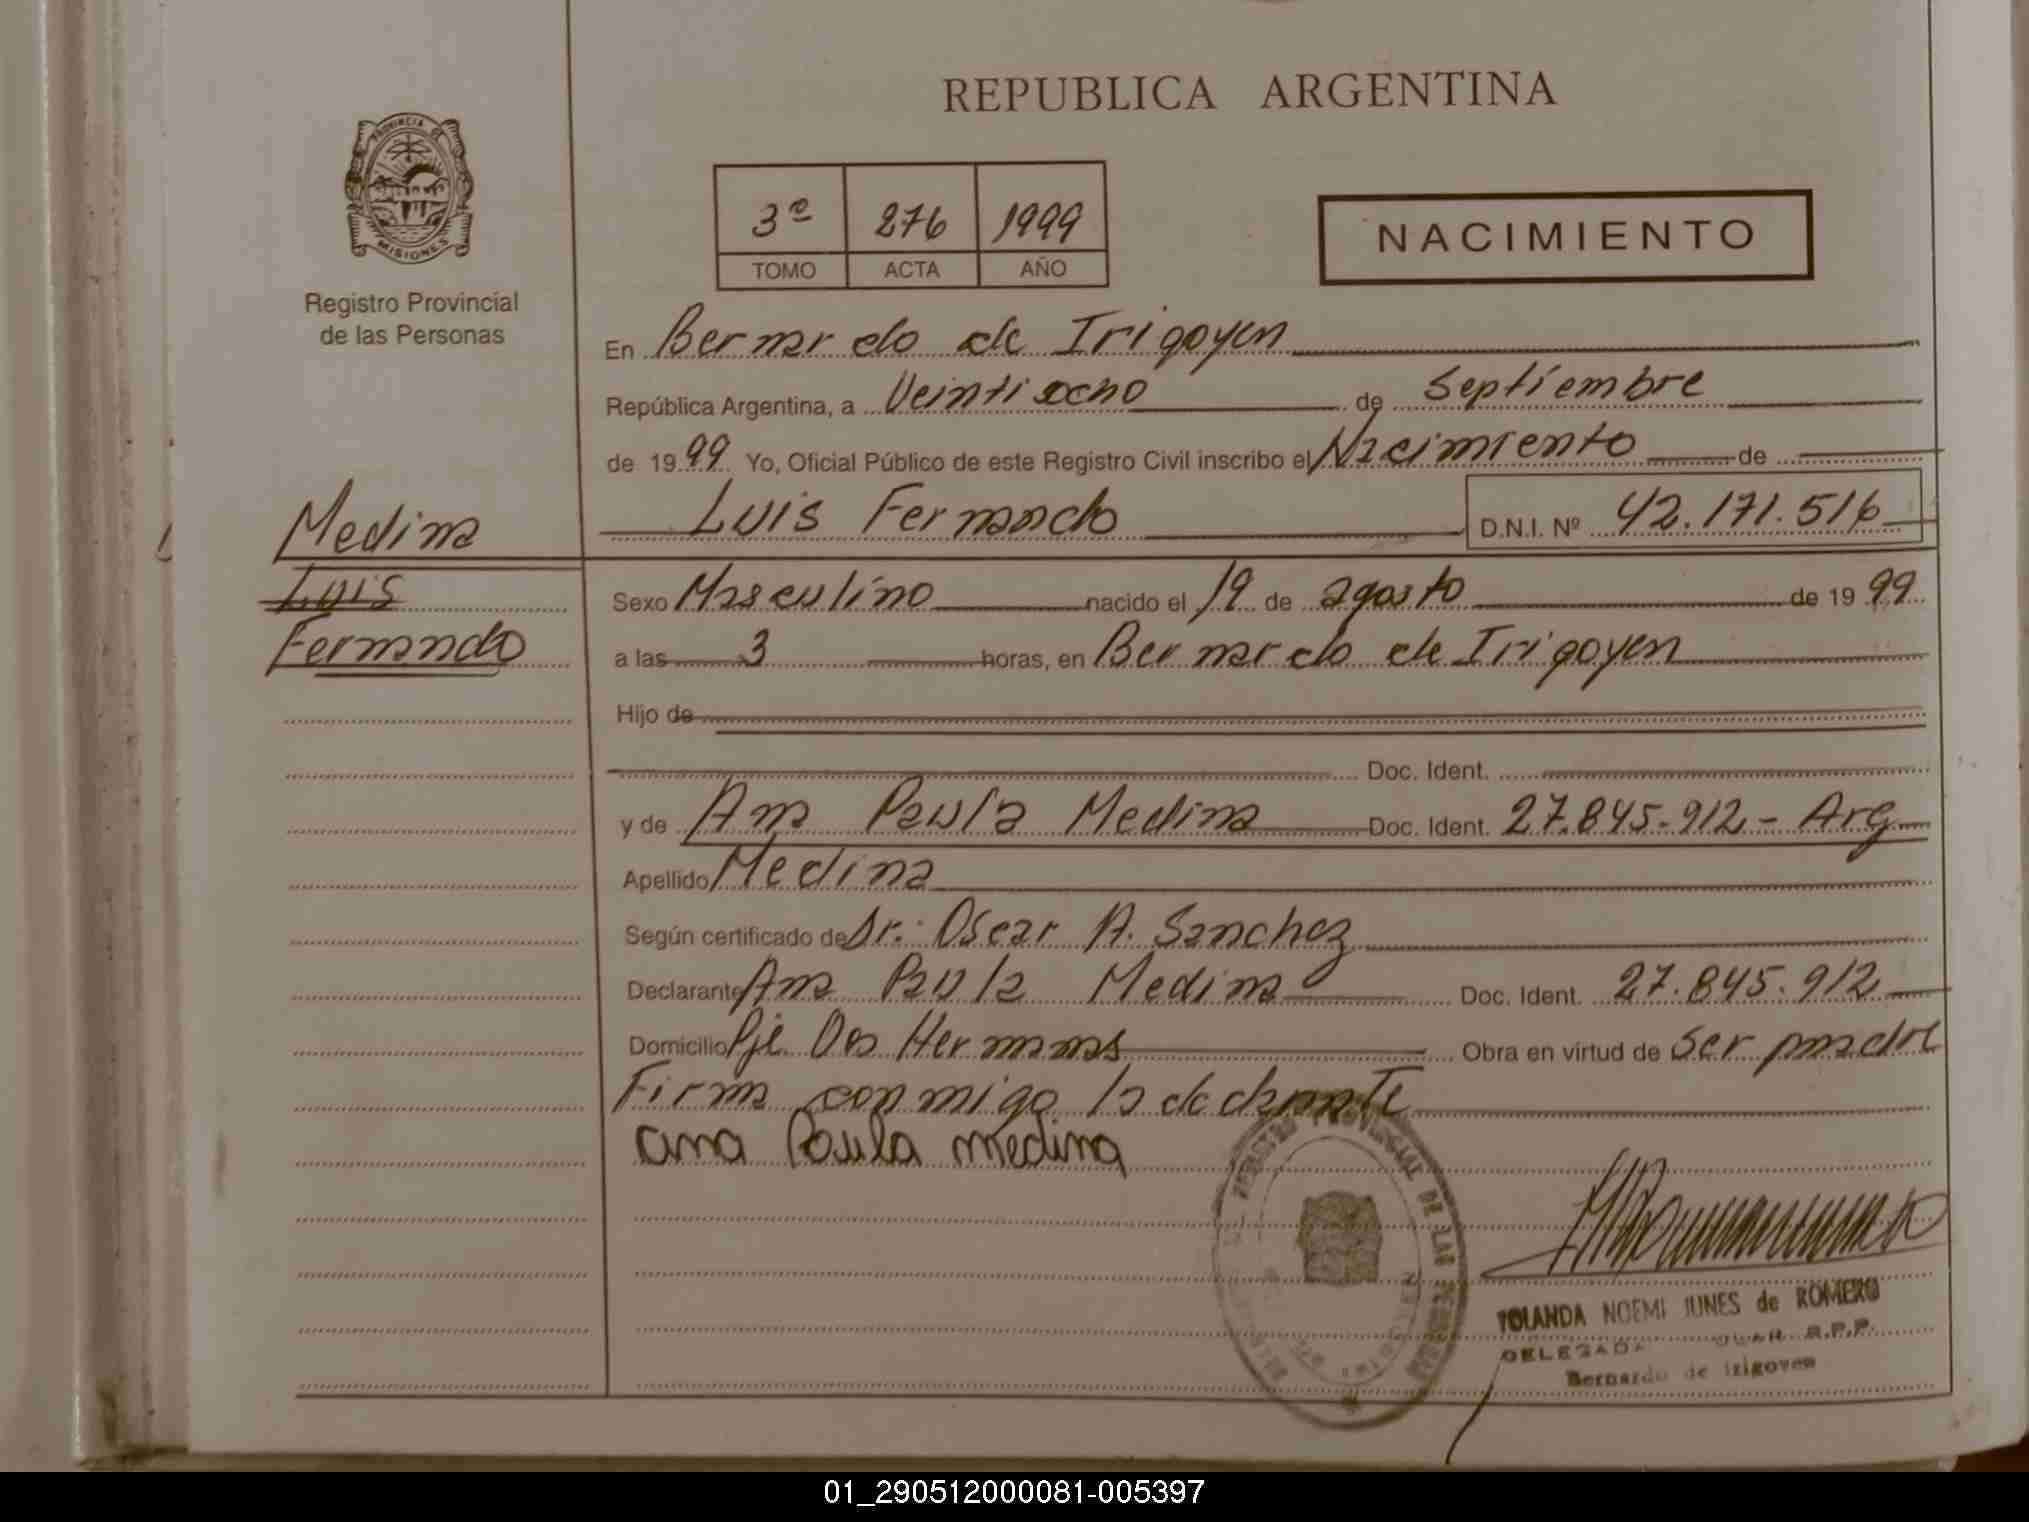 REPUBLICA ARGENTINA
PROVINCIA DE
MISIONES
Registro Provincial
de las Personas
3º 276 1999
TOMO ACTA AÑO
NACIMIENTO
En Bernardo de Irigoyen
República Argentina, a Veintiocho de Septiembre
de 1999 Yo, Oficial Público de este Registro Civil inscribo el Nacimiento de
Luis Fernando D.N.I. Nº 42.171.516
Medina
Luis
Fernando
Sexo Masculino nacido el 19 de agosto de 1999
a las 3 horas, en Bernardo de Irigoyen
Hijo de
Doc. Ident.
y de Ana Paula Medina Doc. Ident. 27.845.912 - Arg
Apellido Medina
Según certificado de Dr. Oscar A. Sanchez
Declarante Ana Paula Medina Doc. Ident. 27.845.912
Domicilio Pje. Dos Hermanas Obra en virtud de ser madre
Firma conmigo la declarante
ana Paula medina
REGISTRO PROVINCIAL DE LAS PERSONAS
YOLANDA NOEMI IUNES de ROMERO
DELEGADA R.P.P.
Bernardo de Irigoyen
01_290512000081-005397